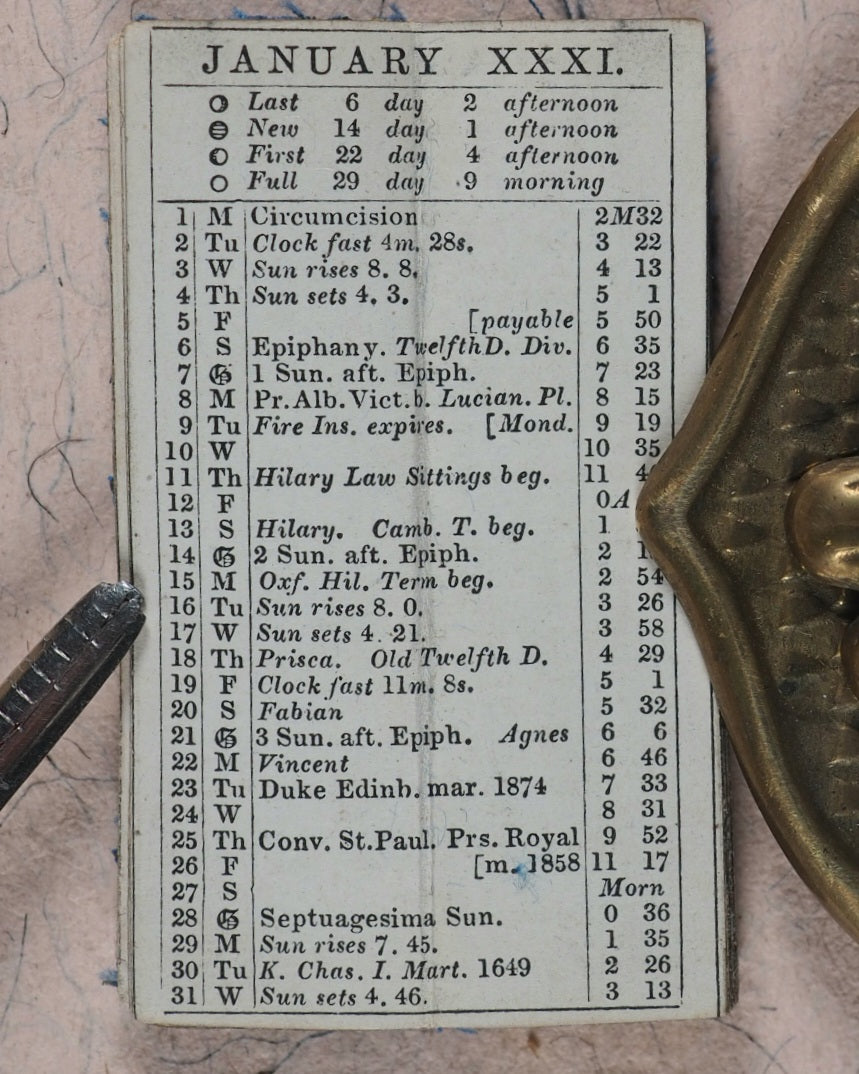 JANUARY XXXI.
Last 6 day 2 afternoon
New 14 day 1 afternoon
First 22 day 4 afternoon
Full 29 day 9 morning
1 M Circumcision 2M32
2 Tu Clock fast 4m. 28s. 3 22
3 W Sun rises 8. 8. 4 13
4 Th Sun sets 4. 3. 5 1
5 F [payable 5 50
6 S Epiphany. TwelfthD. Div. 6 35
7 G 1 Sun. aft. Epiph. 7 23
8 M Pr.Alb.Vict.b. Lucian. Pl. 8 15
9 Tu Fire Ins. expires. [Mond. 9 19
10 W 10 35
11 Th Hilary Law Sittings beg. 11
12 F 0A
13 S Hilary. Camb. T. beg. 1
14 G 2 Sun. aft. Epiph. 2
15 M Oxf. Hil. Term beg. 2 54
16 Tu Sun rises 8. 0. 3 26
17 W Sun sets 4. 21. 3 58
18 Th Prisca. Old Twelfth D. 4 29
19 F Clock fast 11m. 8s. 5 1
20 S Fabian 5 32
21 G 3 Sun. aft. Epiph. Agnes 6 6
22 M Vincent 6 46
23 Tu Duke Edinb. mar. 1874 7 33
24 W 8 31
25 Th Conv. St.Paul. Prs. Royal 9 52
26 F [m. 1858 11 17
27 S Morn
28 G Septuagesima Sun. 0 36
29 M Sun rises 7. 45. 1 35
30 Tu K. Chas. I. Mart. 1649 2 26
31 W Sun sets 4. 46. 3 13